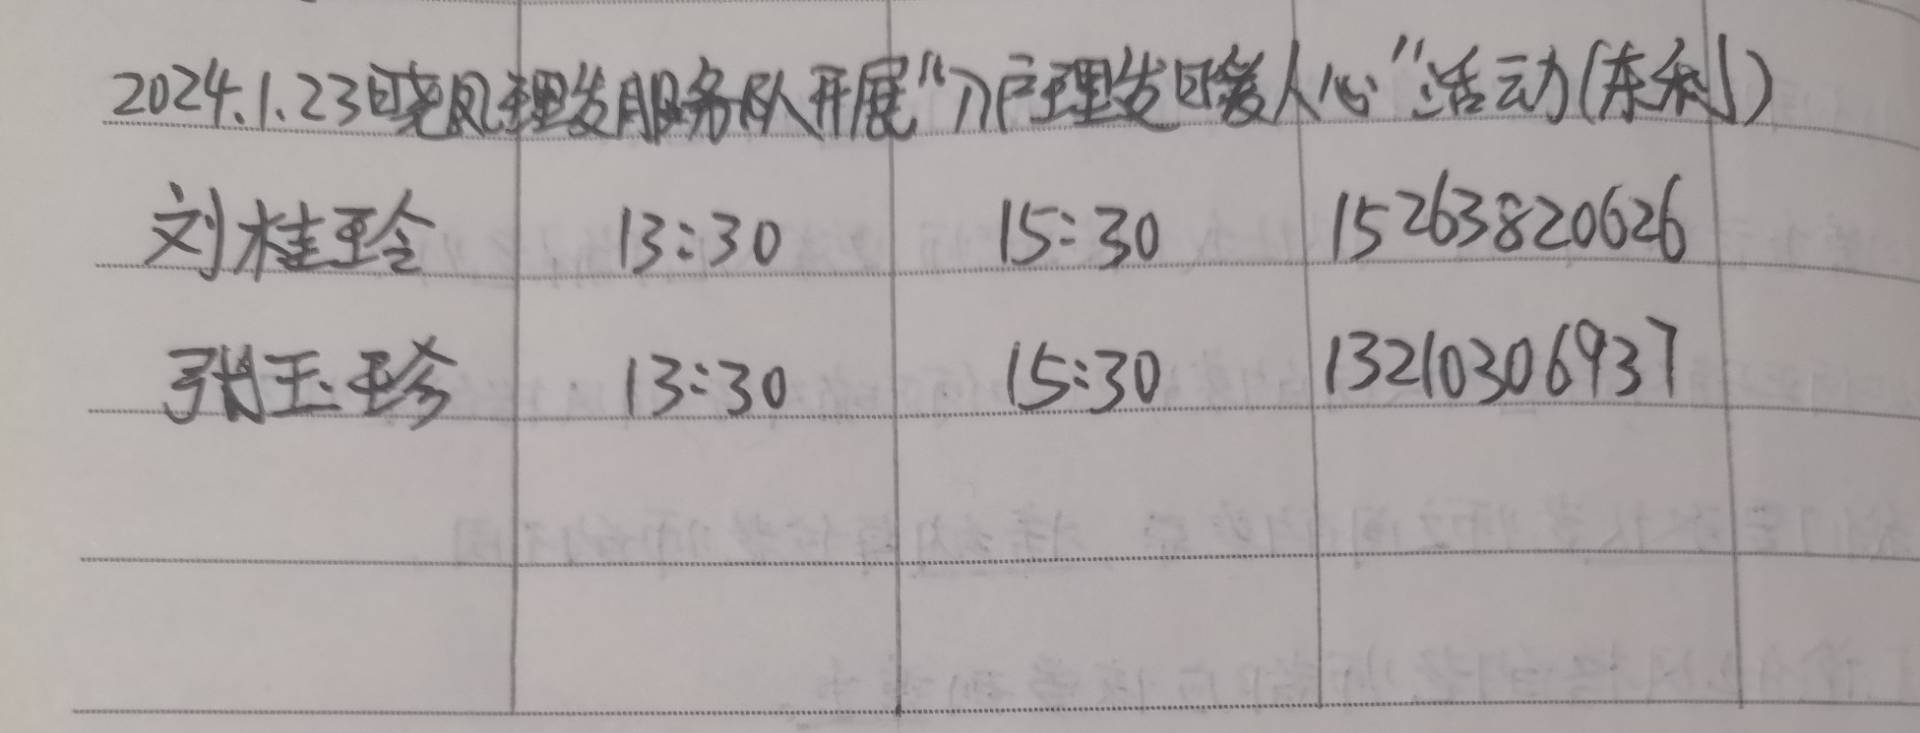 2024.1.23晓风理发服务队开展“入户理发暖人心”活动(东利)
刘桂玲 13:30 15:30 15263820626
张玉珍 13:30 15:30 13210306937